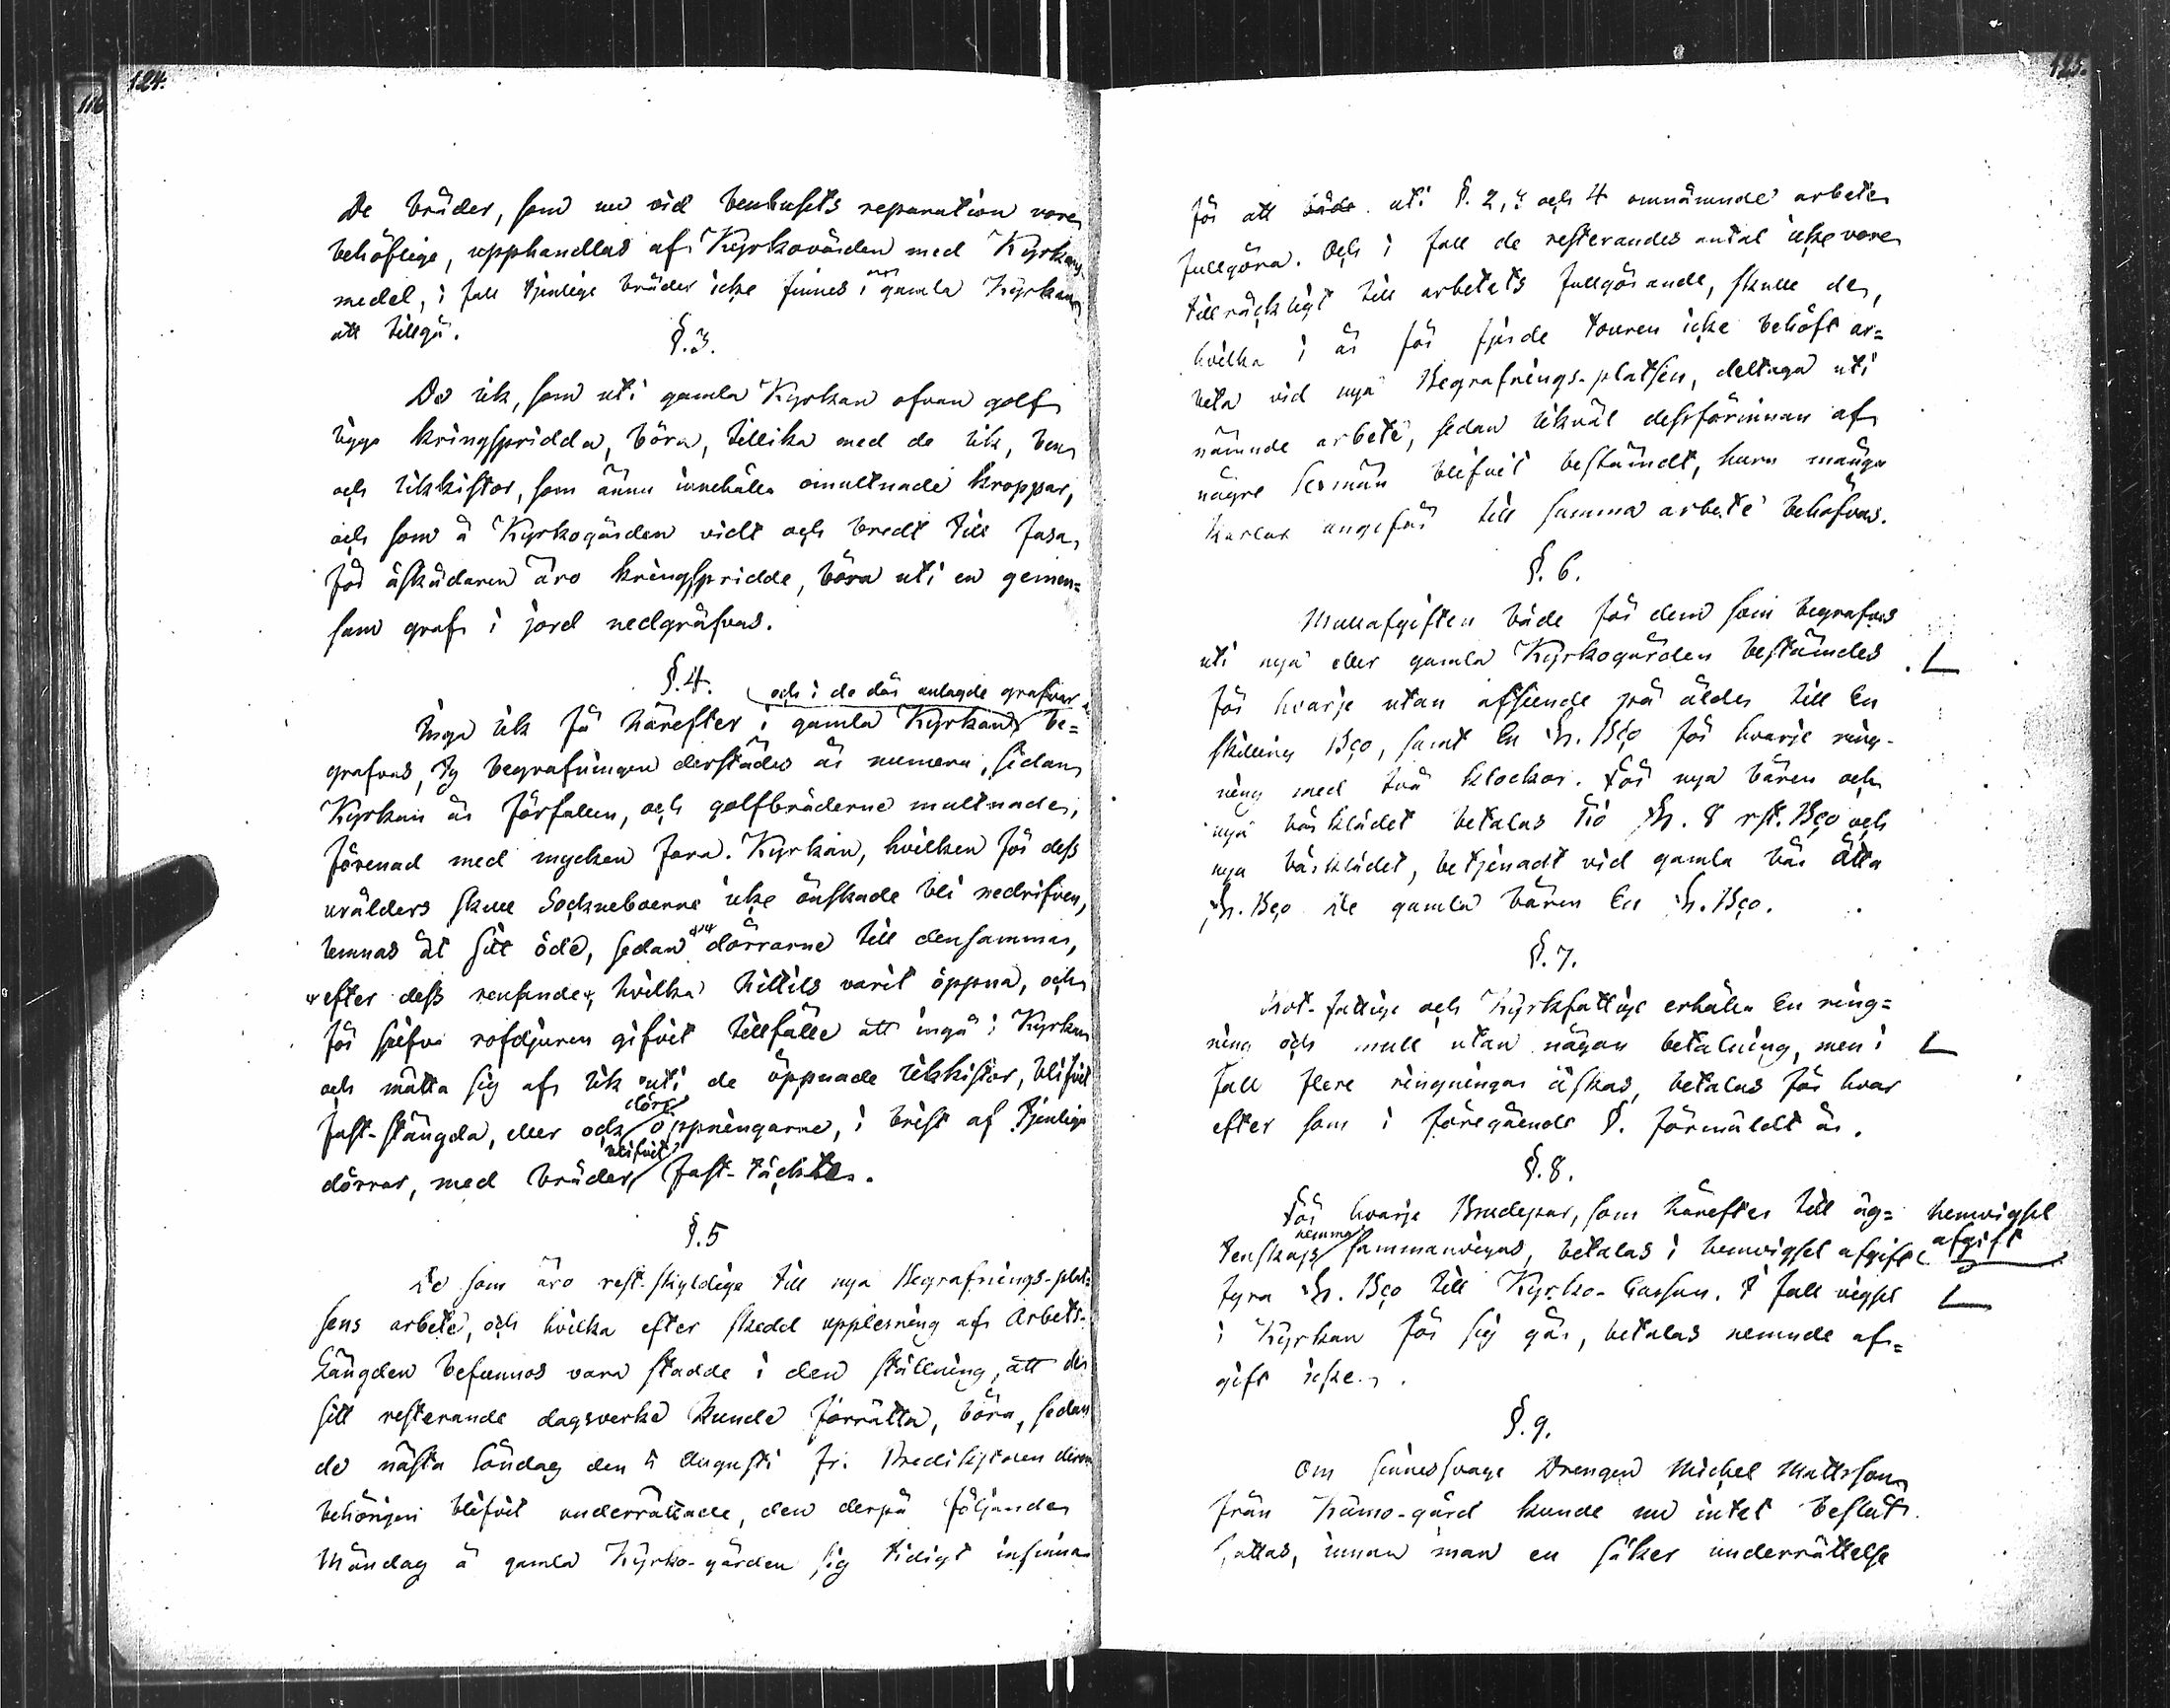 124.
116
De bräder, som nu vid benhusets reparation vore
behöflige, upphandlas af Kyrkovärden med Kyrkans
medel, i fall tjenlige bräder icke finnes i gamla Kyrkan
att tillgå.
§.3.
De lik, som uti gamla Kyrkan ofvan golf
ligga kringspridda, böra, tillika med de lik, ben
och likkistor, som ännu innehålla omultnade kroppar,
och som å Kyrkogården vidt och bredt till fasa
för åskådaren äro kringspridde, böra uti en gemen=
sam graf i jord nedgräfvas.
§.4.
och i de där anlagde grafvar
Inga lik få härefter i gamla Kyrkan be=
grafvas, ty begrafningen derstädes är numera, sedan
Kyrkan är förfallen, och golfbräderne multnade,
förenad med mycken fara. Kyrkan, hvilken för dess
urålders skull Sockneboerne icke önskade bli nedrifven,
lemnas åt sitt öde, sedan dörrarne till densamma,
efter dess rensande, hvilka hittils varit öppna, och
för sjelfva rofdjuren gifvit tillfälle att ingå i Kyrkan
och mätta sig af lik uti de öppnade likkistor, blifvit
fast-stängda, eller ock öppningarne, i brist af tjenliga
dörr
dörrar, med bräder fast-täckte.
blifvit
§.5
De som äro rest-skyldige till nya Begrafnings-plat=
sens arbete, och hvilka efter skedd uppläsning af Arbets-
Längden befunnos vara stadde i den ställning, att de
sitt resterande dagsverke kunde förrätta, böra, sedan
de nästa Söndag den 5 Augusti fr. Predikstolen derom
behörigen blifvit underrättade, den derpå följande
Måndag å gamla Kyrko-gården sig tidigt infinna
125.
för att uti §. 2, 3 och 4 omnämnde arbete
fullgöra. Och i fall de resterandes antal icke vore
tillräckligt till arbetets fullgörande, skulle de,
hvilka i år för fjerde touren icke behöft ar=
beta vid nya Begrafnings-platsen, deltaga uti
nämnde arbete, sedan likväl dessförinnan af
några Sexmän blifvit bestämdt, huru många
Karlar ungefär till samma arbete behöfvas.
§. 6.
Mullafgiften både för dem som begrafvas
uti nya eller gamla Kyrkogården bestämdes
för hvarje utan afseende på ålder till En
skilling Bco, samt En sk. Bco för hvarje ring-
ning med två klockor. För nya båren och
nya bårklädet betalas tio sk. 8 rst. Bco och
nya bårklädet, betjenadt vid gamla bår åtta
sk. Bco gamla båren En sk. Bco.
§. 7.
Rot-fattige och Kyrkfattige erhålla En ring=
ning och mull utan någon betalning, men i
fall flere ringningar äskas, betalas för hvar
efter som i föregående §. förmäldt är.
§. 8.
För hvarje Brudepar, som härefter till äg=
tenskap hemma sammanvigas, betalas i hemvigsel afgift
fyra sk. Bco till Kyrko-Cassan. I fall vigsel
i Kyrkan för sig går, betalas nemnde af=
gift icke.
hemvigsel
afgift
§. 9.
Om sinnessvage Drengen Michel Mattsson
från Kämo-gård kunde nu intet beslut
fattas, innan man en säker underrättelse